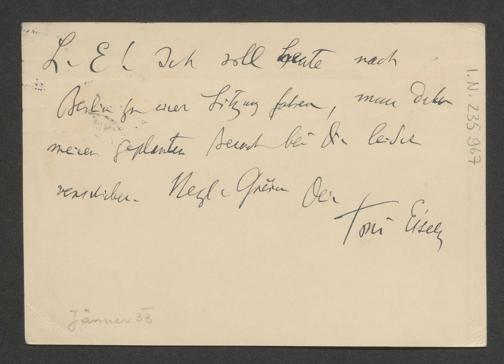 L. E! Ich soll heute nach
Berlin zu einer Sitzung fahren, muss daher
meinen geplanten Besuch bei Dir leider
verschieben. Herzl. Grüsse Dein
Toni Eisely
Jänner 33
I.N. 235.967